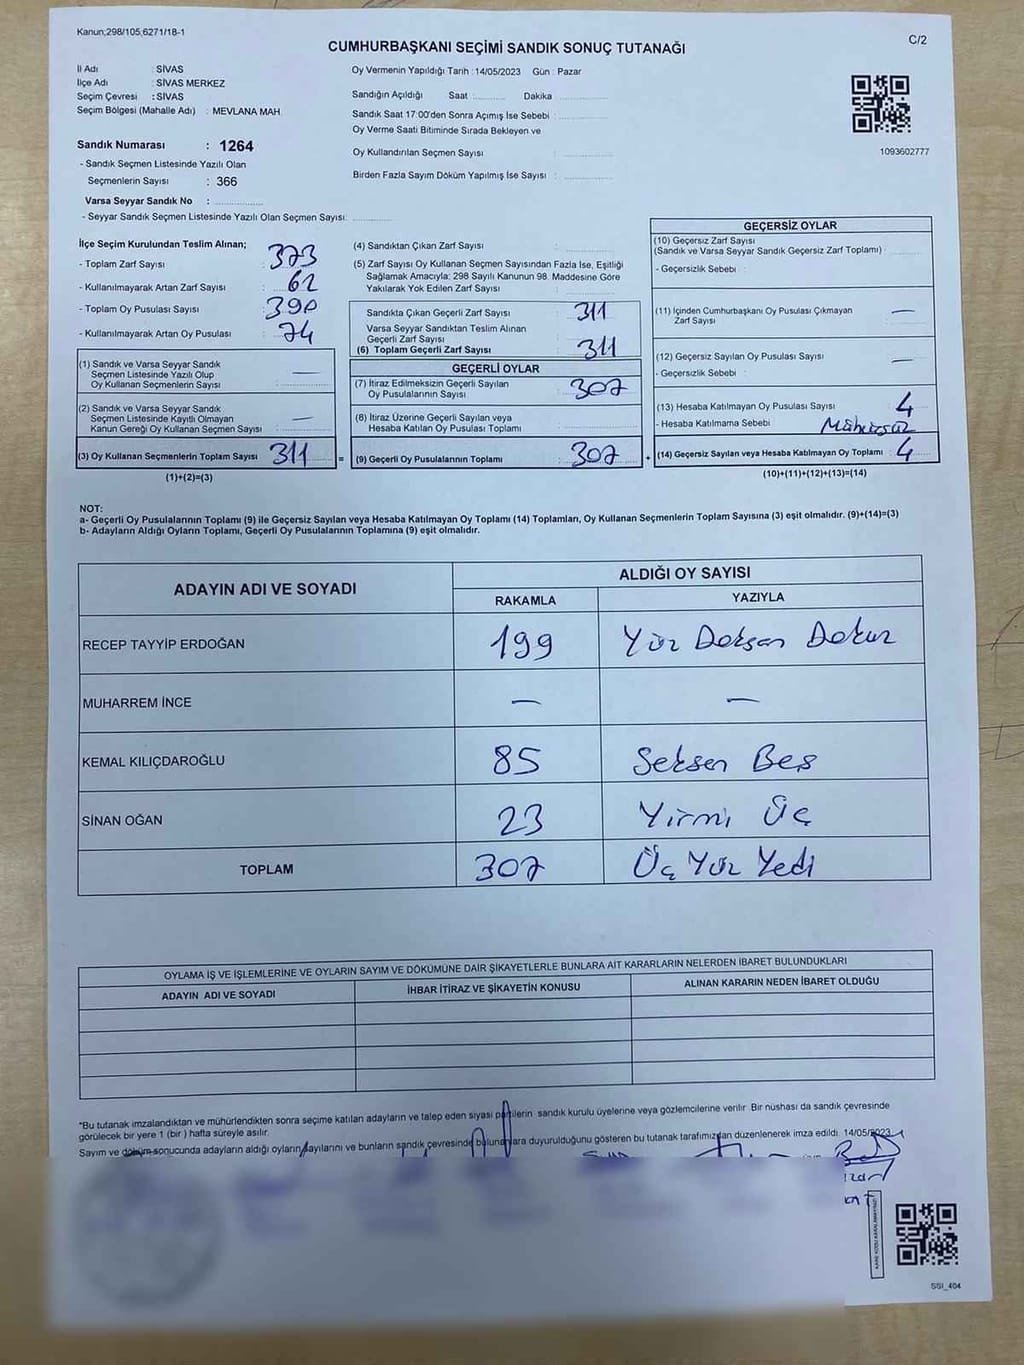 Kanun;298/105,6271/18-1
C/2
CUMHURBAŞKANI SEÇİMİ SANDIK SONUÇ TUTANAĞI
İl Adı : SİVAS
İlçe Adı : SİVAS MERKEZ
Seçim Çevresi : SİVAS
Seçim Bölgesi (Mahalle Adı) : MEVLANA MAH.
Sandık Numarası : 1264
- Sandık Seçmen Listesinde Yazılı Olan
Seçmenlerin Sayısı : 366
Varsa Seyyar Sandık No :
- Seyyar Sandık Seçmen Listesinde Yazılı Olan Seçmen Sayısı:
Oy Vermenin Yapıldığı Tarih : 14/05/2023 Gün : Pazar
Sandığın Açıldığı Saat Dakika
Sandık Saat 17:00'den Sonra Açımış İse Sebebi :
Oy Verme Saati Bitiminde Sırada Bekleyen ve
Oy Kullandırılan Seçmen Sayısı :
Birden Fazla Sayım Döküm Yapılmış İse Sayısı :
1093602777
İlçe Seçim Kurulundan Teslim Alınan;
- Toplam Zarf Sayısı : 373
- Kullanılmayarak Artan Zarf Sayısı : 62
- Toplam Oy Pusulası Sayısı : 390
- Kullanılmayarak Artan Oy Pusulası : 74
(1) Sandık ve Varsa Seyyar Sandık
Seçmen Listesinde Yazılı Olup
Oy Kullanan Seçmenlerin Sayısı : —
(2) Sandık ve Varsa Seyyar Sandık
Seçmen Listesinde Kayıtlı Olmayan
Kanun Gereği Oy Kullanan Seçmen Sayısı : —
(3) Oy Kullanan Seçmenlerin Toplam Sayısı : 311
(1)+(2)=(3)
(4) Sandıktan Çıkan Zarf Sayısı :
(5) Zarf Sayısı Oy Kullanan Seçmen Sayısından Fazla İse, Eşitliği
Sağlamak Amacıyla: 298 Sayılı Kanunun 98. Maddesine Göre
Yakılarak Yok Edilen Zarf Sayısı :
Sandıkta Çıkan Geçerli Zarf Sayısı : 311
Varsa Seyyar Sandıktan Teslim Alınan
Geçerli Zarf Sayısı :
(6) Toplam Geçerli Zarf Sayısı : 311
GEÇERLİ OYLAR
(7) İtiraz Edilmeksizin Geçerli Sayılan
Oy Pusulalarının Sayısı : 307
(8) İtiraz Üzerine Geçerli Sayılan veya
Hesaba Katılan Oy Pusulaları Toplamı :
= (9) Geçerli Oy Pusulalarının Toplamı : 307
GEÇERSİZ OYLAR
(10) Geçersiz Zarf Sayısı
(Sandık ve Varsa Seyyar Sandık Geçersiz Zarf Toplamı) :
- Geçersizlik Sebebi :
(11) İçinden Cumhurbaşkanı Oy Pusulası Çıkmayan
Zarf Sayısı : —
(12) Geçersiz Sayılan Oy Pusulası Sayısı : —
- Geçersizlik Sebebi :
(13) Hesaba Katılmayan Oy Pusulası Sayısı : 4
- Hesaba Katılmama Sebebi : Mühürsüz
+ (14) Geçersiz Sayılan veya Hesaba Katılmayan Oy Toplamı : 4
(10)+(11)+(12)+(13)=(14)
NOT:
a- Geçerli Oy Pusulalarının Toplamı (9) ile Geçersiz Sayılan veya Hesaba Katılmayan Oy Toplamı (14) Toplamları, Oy Kullanan Seçmenlerin Toplam Sayısına (3) eşit olmalıdır. (9)+(14)=(3)
b- Adayların Aldığı Oyların Toplamı, Geçerli Oy Pusulalarının Toplamına (9) eşit olmalıdır.
ADAYIN ADI VE SOYADI ALDIĞI OY SAYISI
RAKAMLA YAZIYLA
RECEP TAYYİP ERDOĞAN 199 Yüz Doksan Dokuz
MUHARREM İNCE — —
KEMAL KILIÇDAROĞLU 85 Seksen Beş
SİNAN OĞAN 23 Yirmi Üç
TOPLAM 307 Üç Yüz Yedi
OYLAMA İŞ VE İŞLEMLERİNE VE OYLARIN SAYIM VE DÖKÜMÜNE DAİR ŞİKAYETLERLE BUNLARA AİT KARARLARIN NELERDEN İBARET BULUNDUKLARI
ADAYIN ADI VE SOYADI İHBAR İTİRAZ VE ŞİKAYETİN KONUSU ALINAN KARARIN NEDEN İBARET OLDUĞU
*Bu tutanak imzalandıktan ve mühürlendikten sonra seçime katılan adayların ve talep eden siyasi partilerin sandık kurulu üyelerine veya gözlemcilerine verilir. Bir nüshası da sandık çevresinde
görülecek bir yere 1 (bir) hafta süreyle asılır.
Sayım ve döküm sonucunda adayların aldığı oyların sayılarını ve bunların sandık çevresinde bulunanlara duyurulduğunu gösteren bu tutanak tarafımızdan düzenlenerek imza edildi. 14/05/2023
SSI_404